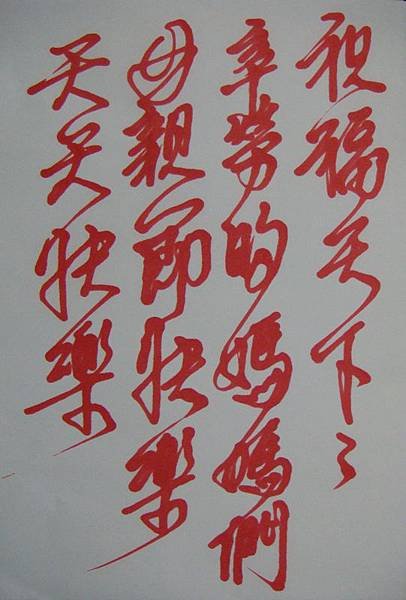 祝福天下
辛勞的媽媽們
母親節快樂
天天快樂